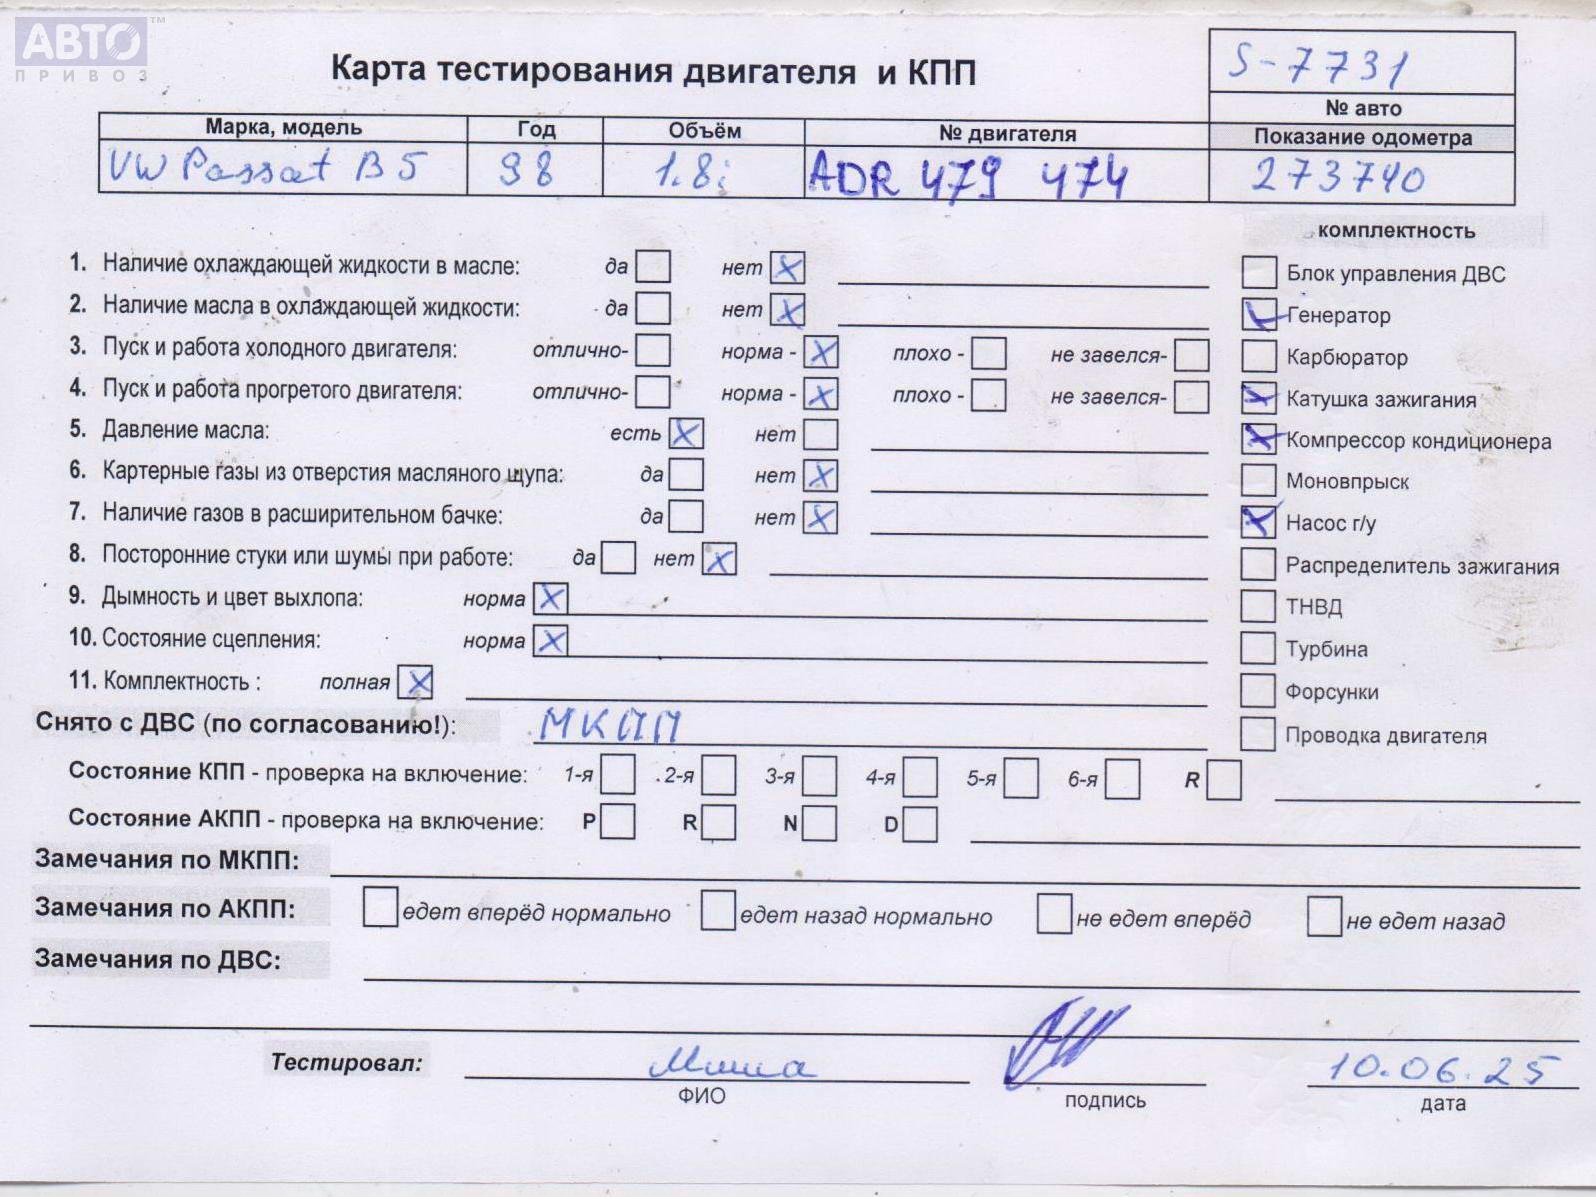 АВТО™
ПРИВОЗ
Карта тестирования двигателя и КПП
S-7731
№ авто
Марка, модель Год Объём № двигателя Показание одометра
VW Passat B5 98 1.8i ADR 479 474 273740
комплектность
1. Наличие охлаждающей жидкости в масле: да нет X
Блок управления ДВС
2. Наличие масла в охлаждающей жидкости: да нет X
Генератор
3. Пуск и работа холодного двигателя: отлично- норма - X плохо - не завелся-
Карбюратор
4. Пуск и работа прогретого двигателя: отлично- норма - X плохо - не завелся-
Катушка зажигания
5. Давление масла: есть X нет
Компрессор кондиционера
6. Картерные газы из отверстия масляного щупа: да нет X
Моновпрыск
7. Наличие газов в расширительном бачке: да нет X
Насос г/у
8. Посторонние стуки или шумы при работе: да нет X
Распределитель зажигания
9. Дымность и цвет выхлопа: норма X
ТНВД
10. Состояние сцепления: норма X
Турбина
11. Комплектность : полная X
Форсунки
Снято с ДВС (по согласованию!): МКПП
Проводка двигателя
Состояние КПП - проверка на включение: 1-я 2-я 3-я 4-я 5-я 6-я R
Состояние АКПП - проверка на включение: P R N D
Замечания по МКПП:
Замечания по АКПП: едет вперёд нормально едет назад нормально не едет вперёд не едет назад
Замечания по ДВС:
Тестировал: Миша 10.06.25
ФИО подпись дата